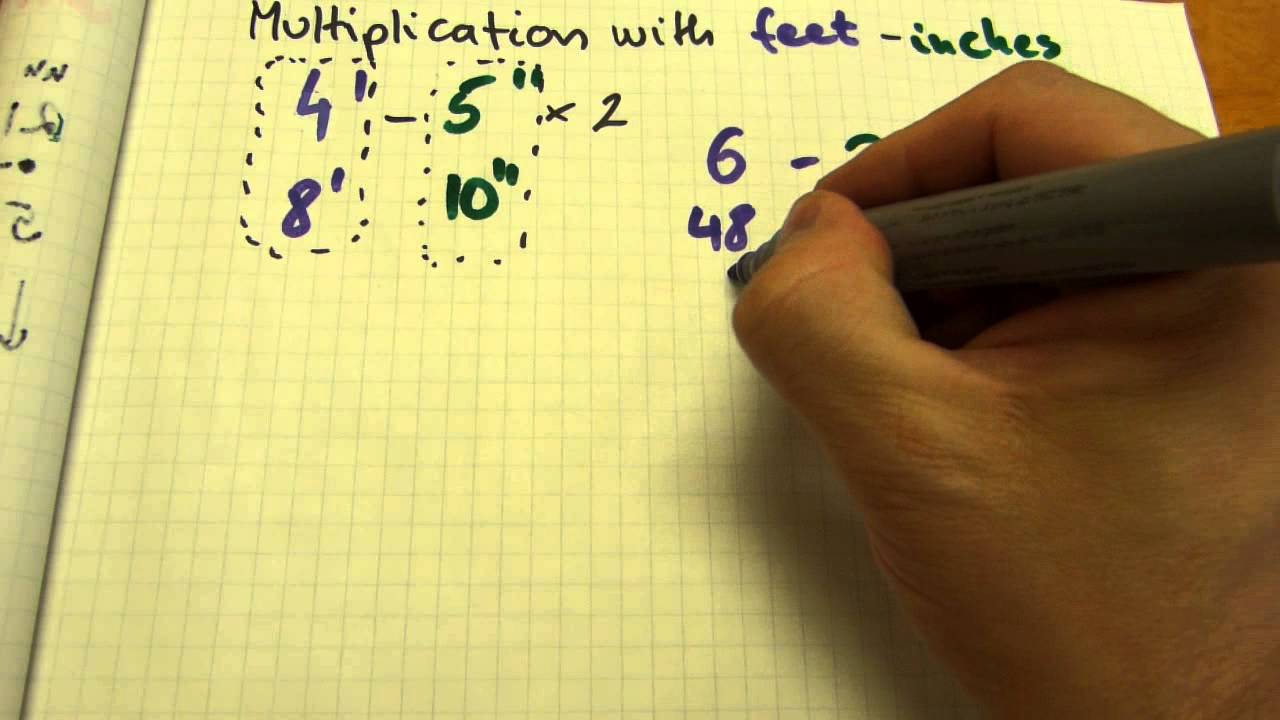 Multiplication with feet - inches
4' - 5" × 2
8' 10"
6 -
48